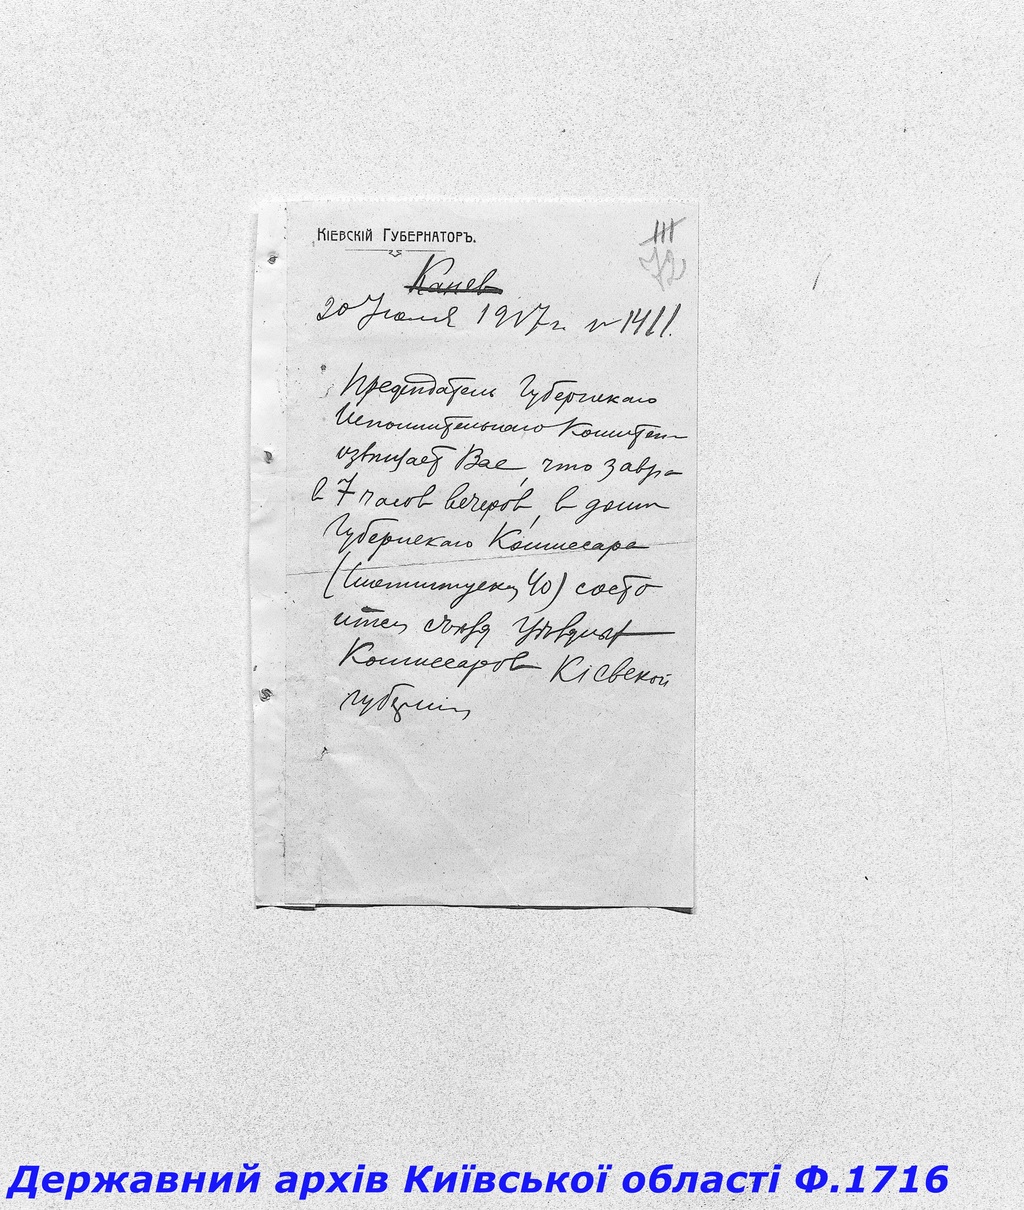 Кіевскій Губернаторъ.
III
72
Канев
20 Июля 1917 г. № 1411.
Председатель Губернскаго
Исполнительнаго Комитета
извещает Вас, что завтра
в 7 часов вечеров, в доме
Губернскаго Комиссара
(Институтская 40) состо
ится съезд Уездных
Комиссаров Кіевской
губерніи
Державний архів Київської області Ф.1716